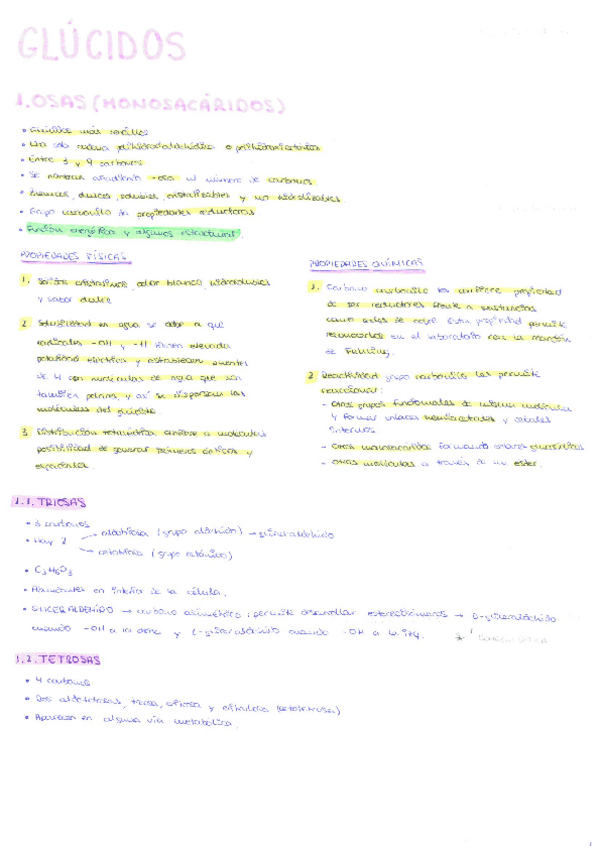 GLÚCIDOS
1. OSAS (MONOSACÁRIDOS)
• Glúcidos más sencillos
• Una sola cadena polihidroxialdehídica o polihidroxicetónica
• Entre 3 y 9 carbonos
• Se nombran añadiendo -osa al número de carbonos
• Blancos, dulces, solubles, cristalizables y no hidrolizables.
• Grupo carbonilo da propiedades reductoras
• Función energética y algunos estructural.
PROPIEDADES FÍSICAS
1. Sólidos cristalinos, color blanco, hidrosolubles
y sabor dulce
2. Solubilidad en agua se debe a que
radicales -OH y -H tienen elevada
polaridad eléctrica y establecen puentes
de H con moléculas de agua que son
también polares, y así se dispersan las
moléculas del glúcido.
3. Distribución tetraédrica confiere a moléculas
posibilidad de generar isómeros ópticos y
espaciales.
PROPIEDADES QUÍMICAS
1. Carbono carbonilo les confiere propiedad
de ser reductores frente a sustancias
como sales de cobre. Esta propiedad permite
reconocerlos en el laboratorio con la reacción
de Fehling.
2. Reactividad grupo carbonilo les permite
reaccionar:
- Otros grupos funcionales de misma molécula
y formar enlaces hemiacetales y cetales
internos.
- Otros monosacáridos formando enlaces glucosídicos
- Otras moléculas a través de un ester.
1.1. TRIOSAS
• 3 carbonos
• Hay 2 → aldotriosa (grupo aldehído) → gliceraldehído
→ cetotriosa (grupo cetónico)
• C3H6O3
• Abundantes en interior de la célula.
• GLICERALDEHÍDO → carbono asimétrico: permite desarrollar estereoisómeros → D-gliceraldehído
cuando -OH a la dcha y L-gliceraldehído cuando -OH a la izq.
1.2. TETROSAS
• 4 carbonos
• Dos aldotetrosas, treosa, eritrosa y eritrulosa (cetotetrosa)
• Aparecen en alguna vía metabólica.